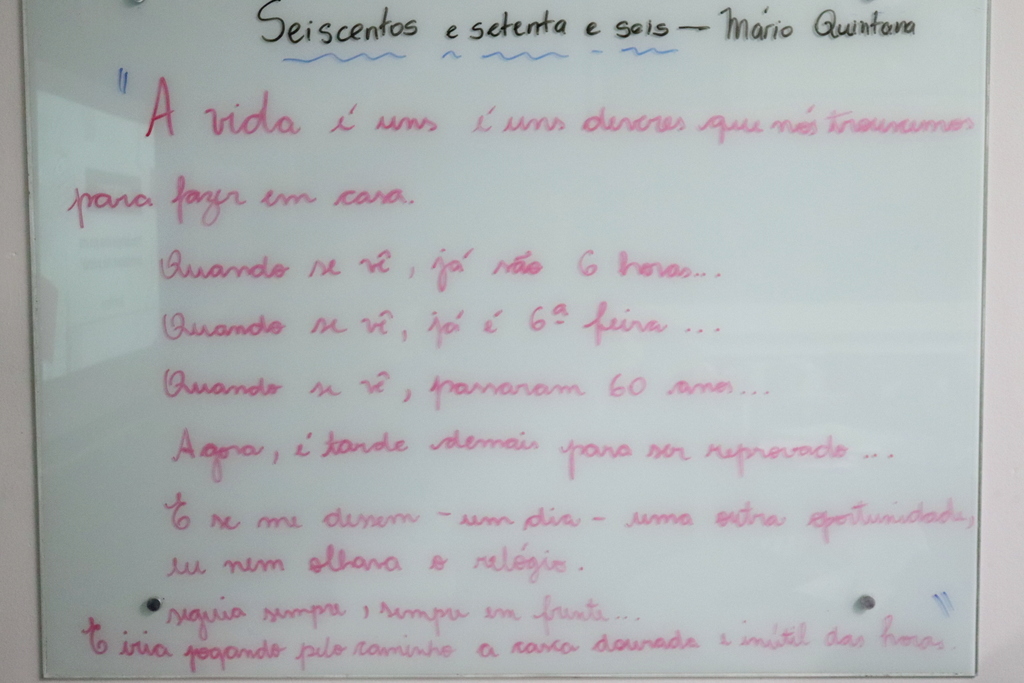 Seiscentos e setenta e seis – Mário Quintana
"A vida é uns é uns deveres que nós trouxemos
para fazer em casa.
Quando se vê, já são 6 horas...
Quando se vê, já é 6ª feira...
Quando se vê, passaram 60 anos...
Agora, é tarde demais para ser reprovado...
E se me dessem - um dia - uma outra oportunidade,
eu nem olhava o relógio.
seguia sempre, sempre em frente...
E iria jogando pelo caminho a casca dourada e inútil das horas."